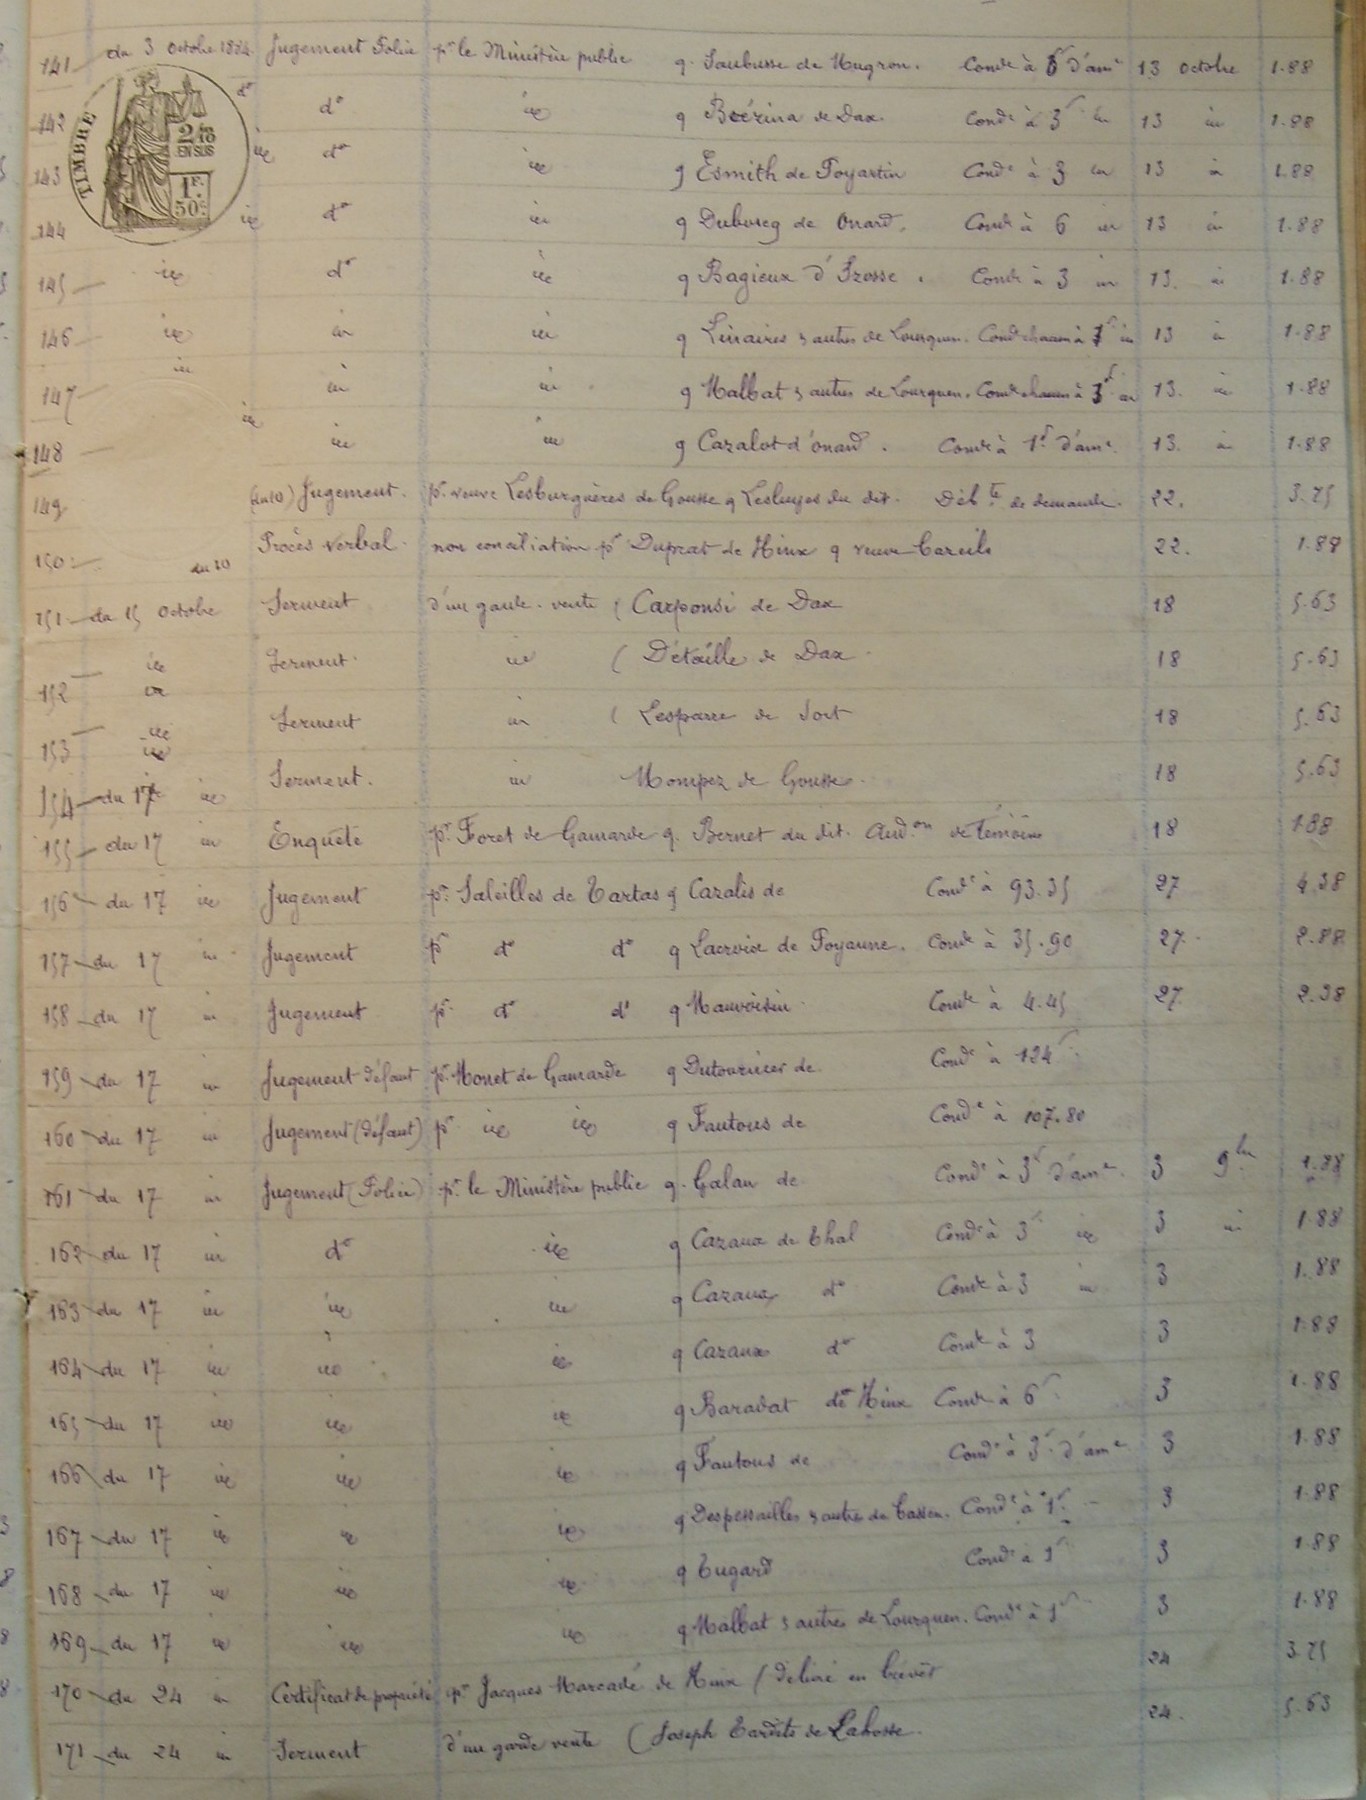 141 du 3 octobre 1884 Jugement Police pr le Ministère public q. Saubusse de Mugron. Condé à 6f d'ame 13 octobre 1.88
TIMBRE
2/10 EN SUS
1F. 50C.
142 do do id q Boérina de Dax Condé à 3f id 13 id 1.88
143 id do id q Esmith de Poyartin Condé à 3 id 13 id 1.88
144 id do id q Duboscq de Onard. Condé à 6 id 13 id 1.88
145 id do id q Bagieux d'Izosse. Condé à 3 id 13. id 1.88
146 id id id q Linaires & autres de Lourquen. Condé chacun à 1f id 13 id 1.88
147 id id id q Malbat & autres de Lourquen. Condé chacun à 3f id 13. id 1.88
148 id id id q Cazalot d'onard. Condé à 1f d'ame 13. id 1.88
149 (du 10) Jugement. pr. veuve Lesburguères de Gousse q Lesluyes du dit. Déb.té de demande. 22. 3.75
150 du 10 Procès verbal. non conciliation pr Duprat de Hinx q veuve Careils 22. 1.88
151 du 15 octobre Serment d'un garde-vente ( Carponsi de Dax 18 5.63
152 id Serment. id ( Détaille de Dax. 18 5.63
153 id Serment id ( Lesparre de Sort 18 5.63
154 du 17 id Serment. id Mompez de Gousse. 18 5.63
155 du 17 id Enquête pr. Foret de Gamarde q. Bernet du dit. Aud.on de témoins 18 1.88
156 du 17 id Jugement pr. Saleilles de Tartas q Cazalis de Condé à 93.35 27 4.38
157 du 17 id Jugement pr do do q Lacroix de Poyanne. Condé à 35.90 27. 2.88
158 du 17 id Jugement pr. do do q Mauvoisin. Condé à 4.45 27. 2.38
159 du 17 id Jugement défaut pr. Monet de Gamarde q Dutournier de Condé à 124f.
160 du 17 id Jugement (défaut) pr id id q Fautous de Condé à 107.80
161 du 17 id Jugement (Police) pr. le Ministère public q. Galau de Condé à 3f d'ame. 3 9bre 1.88
162 du 17 id do id q Cazaux de Thal Condé à 3f id 3 id 1.88
163 du 17 id id id q Cazaux do Condé à 3 id 3 1.88
164 du 17 id id id q Cazaux do Condé à 3 3 1.88
165 du 17 id id id q Baradat de Hinx Condé à 6f. 3 1.88
166 du 17 id id id q Fautous de Condé à 3f. d'ame 3 1.88
167 du 17 id id id q Despessailles & autres de Cassen. Condé à 1f. 3 1.88
168 du 17 id id id q Tugard Condé à 1f 3 1.88
169 du 17 id id id q Malbat & autres de Lourquen. Condé à 1f 3 1.88
170 du 24 id Certificat de propriété pr Jacques Marcadé de Hinx ( délivré en brévèt 24 3.75
171 du 24 id Serment d'un garde vente ( Joseph Tardits de Lahosse. 24. 5.63